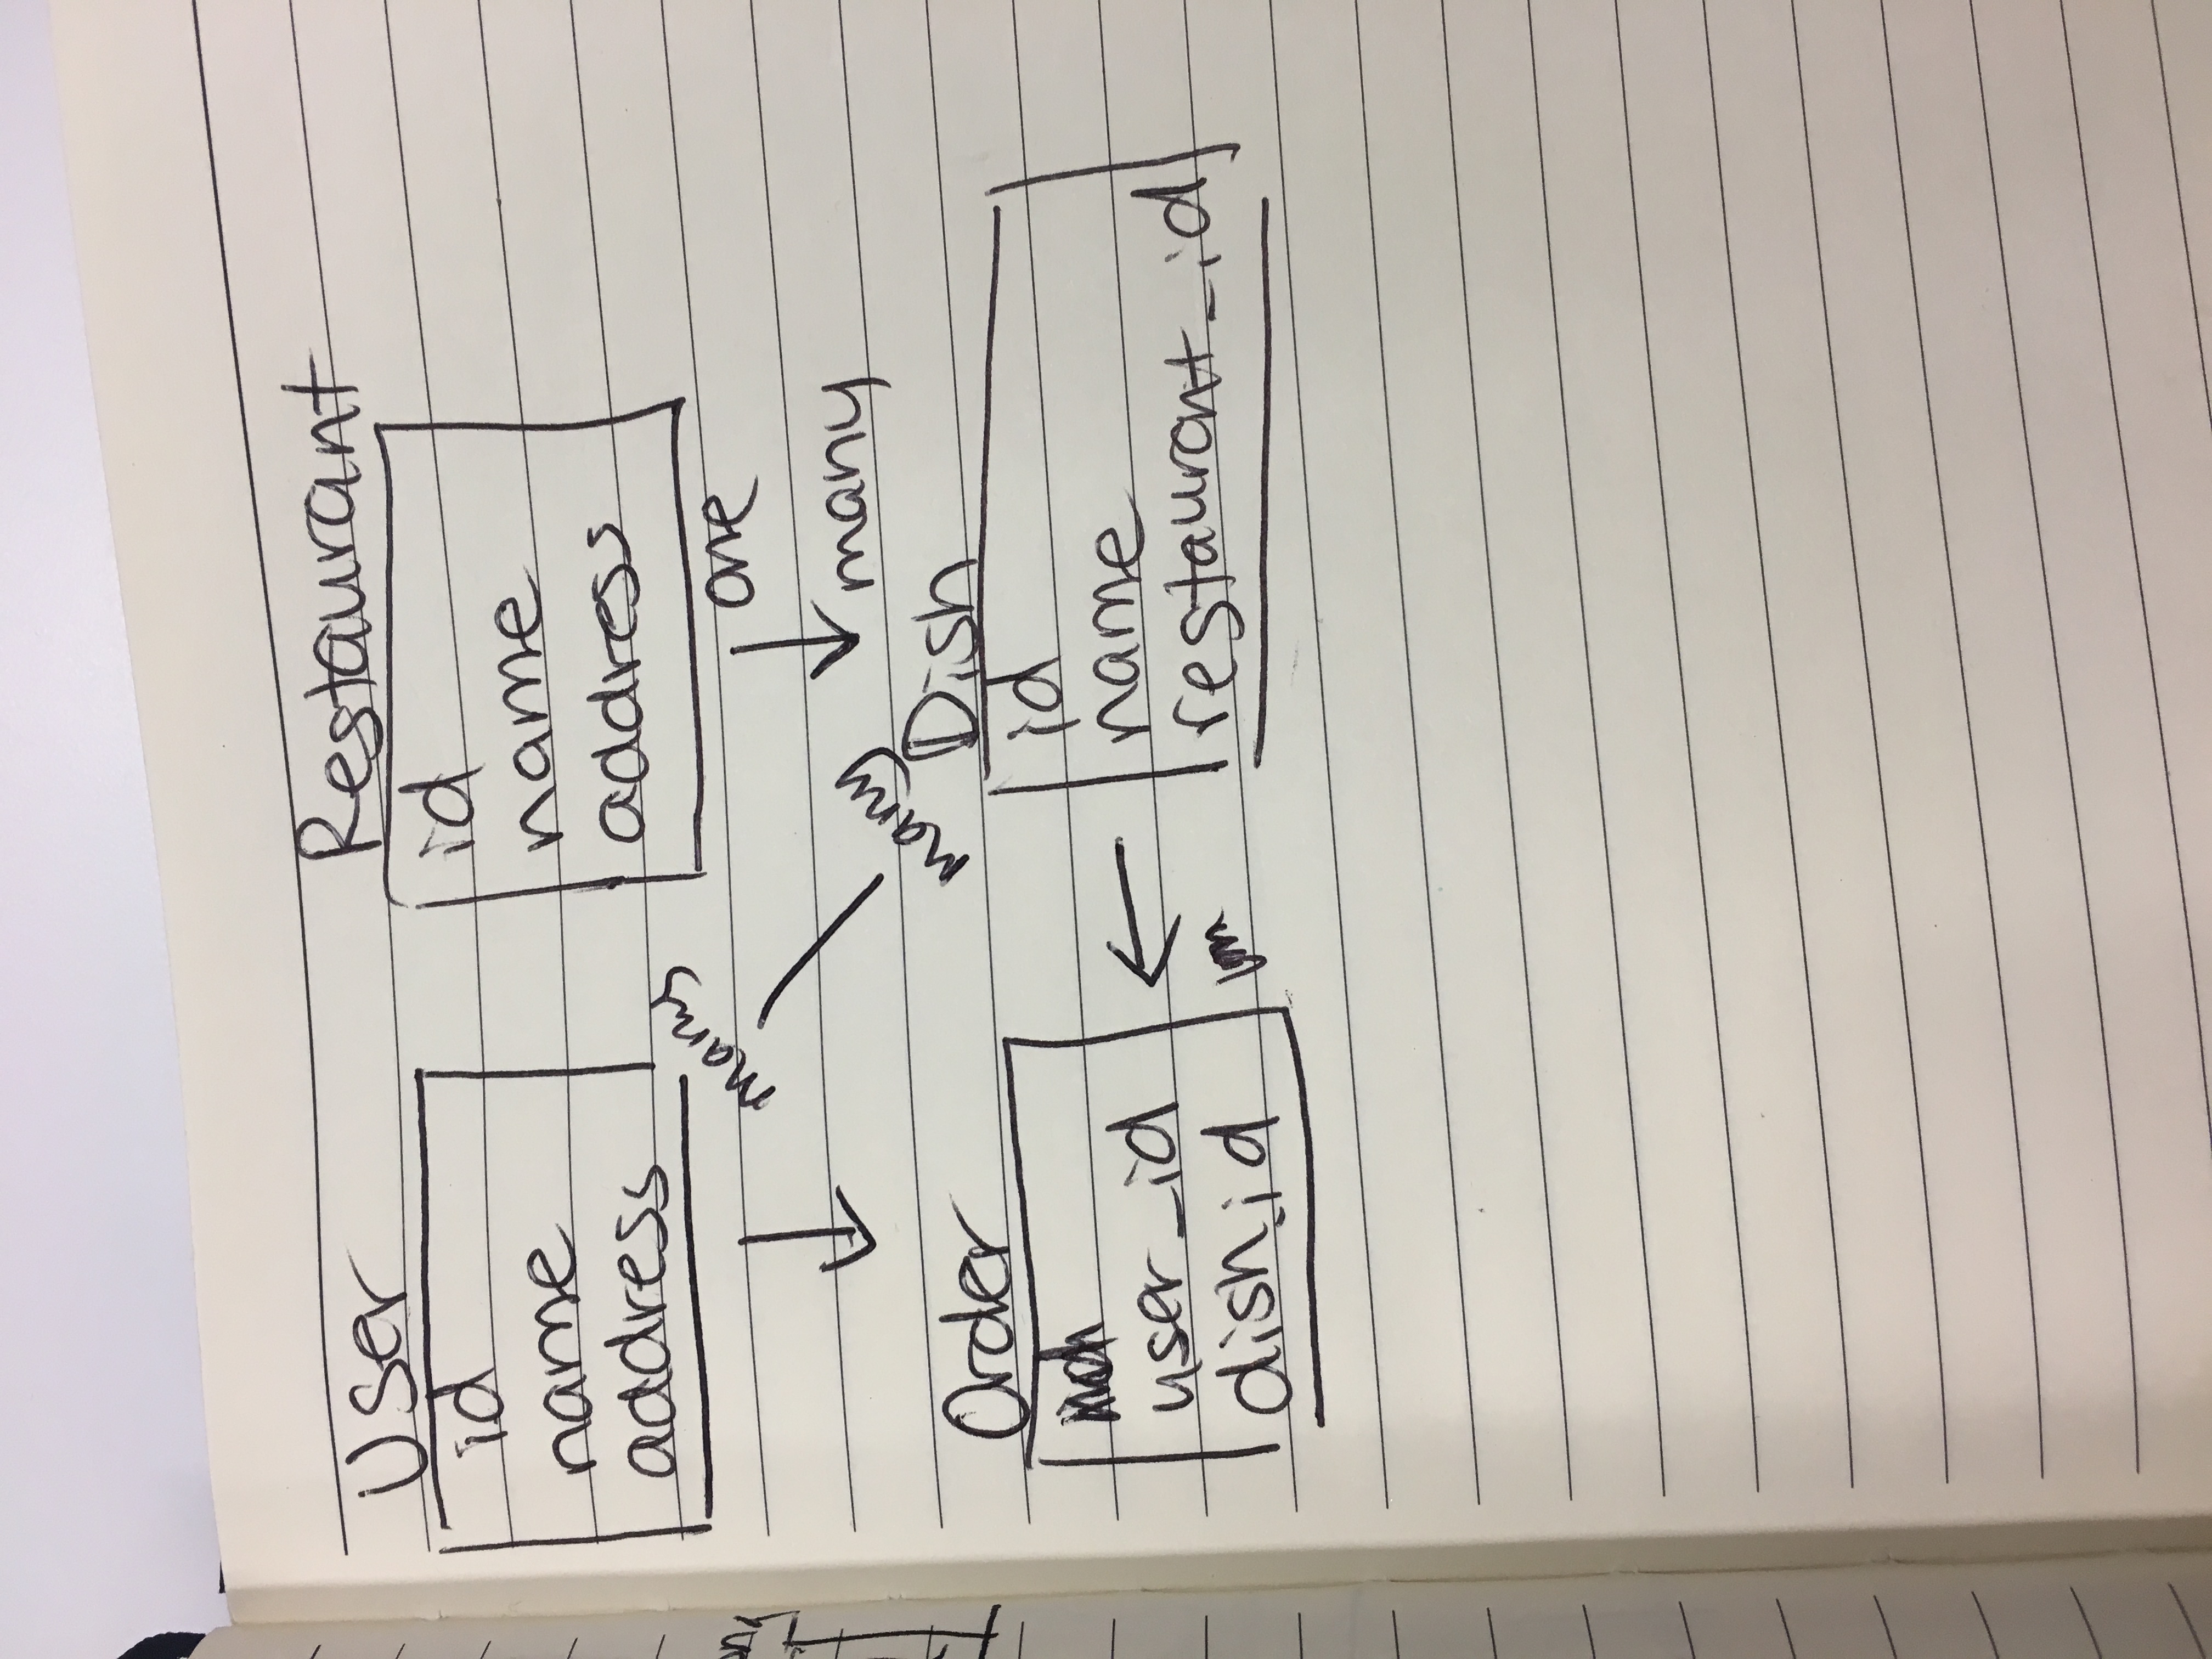 User
id
name
address
Restaurant
id
name
address
many
many
one
many
Order
user_id
dish_id
Dish
id
name
restaurant_id